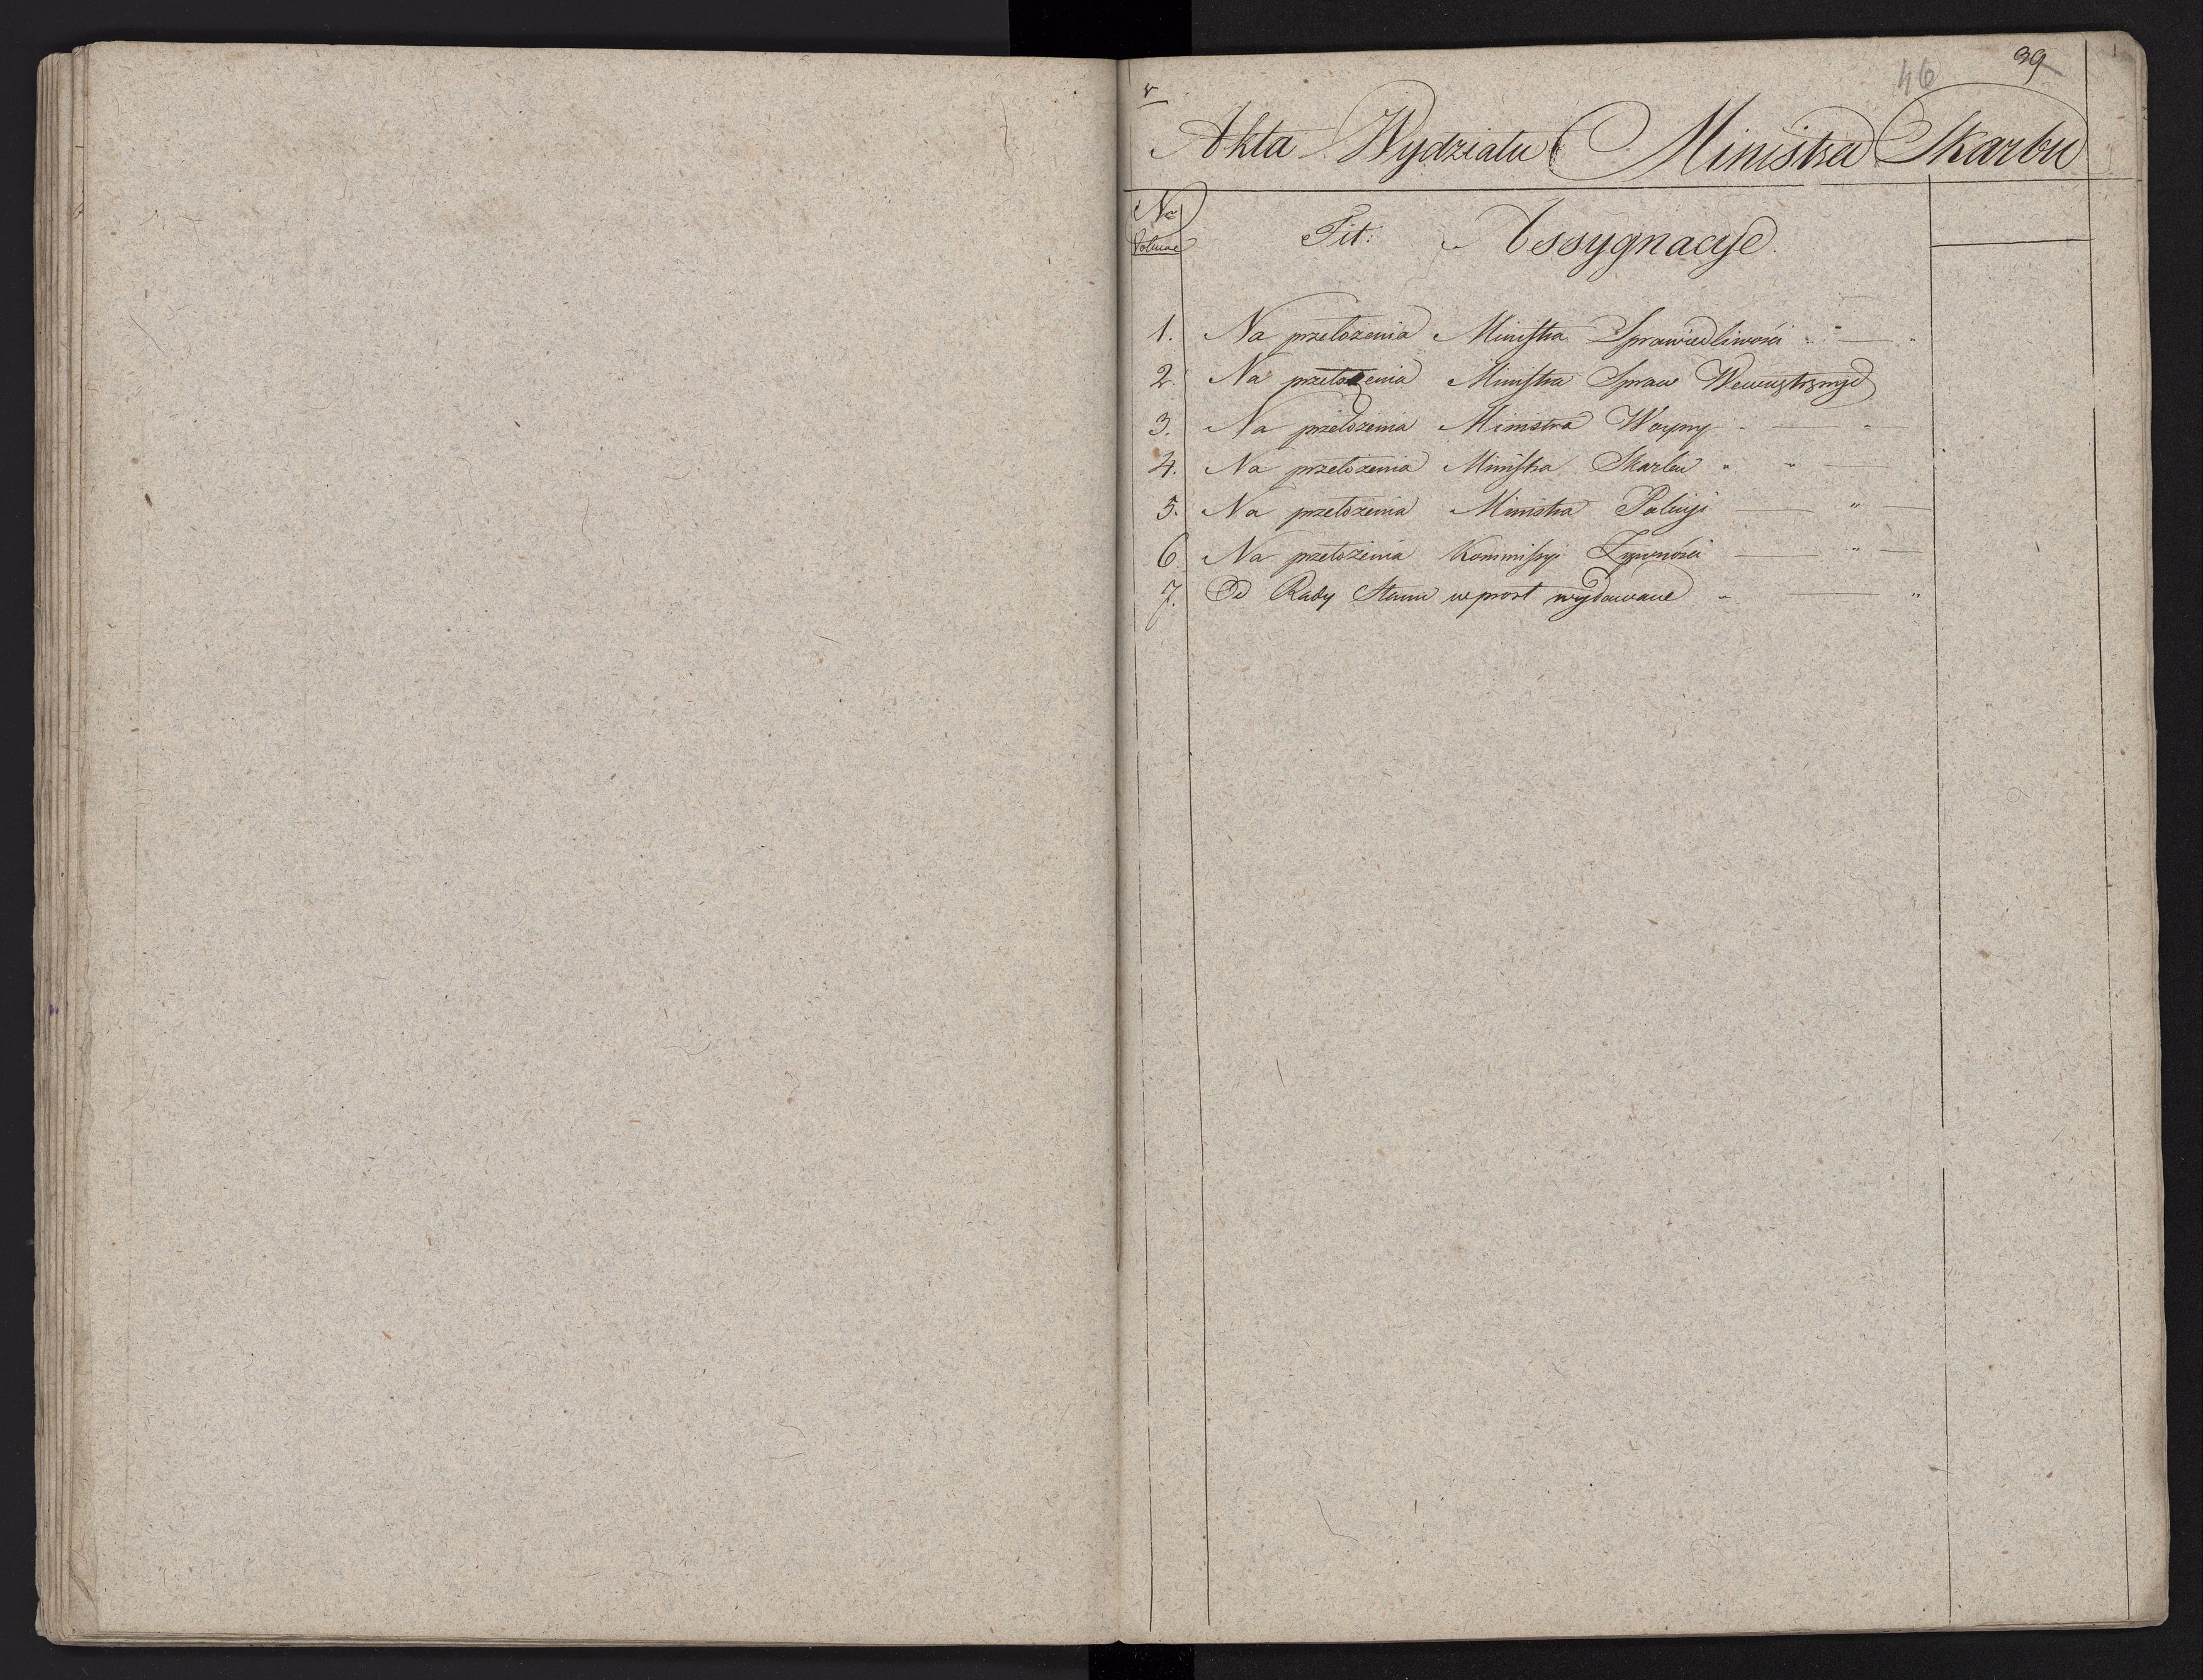 46 39
Akta Wydziału Ministra Skarbu
No
Volume
Tit: Assygnacye.
1. Na przełożenia Ministra Sprawiedliwości
2. Na przełożenia Ministra Spraw Wewnętrznych
3. Na przełożenia Ministra Woyny
4. Na przełożenia Ministra Skarbu
5. Na przełożenia Ministra Policyi
6. Na przełożenia Kommissyi Żywności
7. Od Rady Stanu wprost wydawane